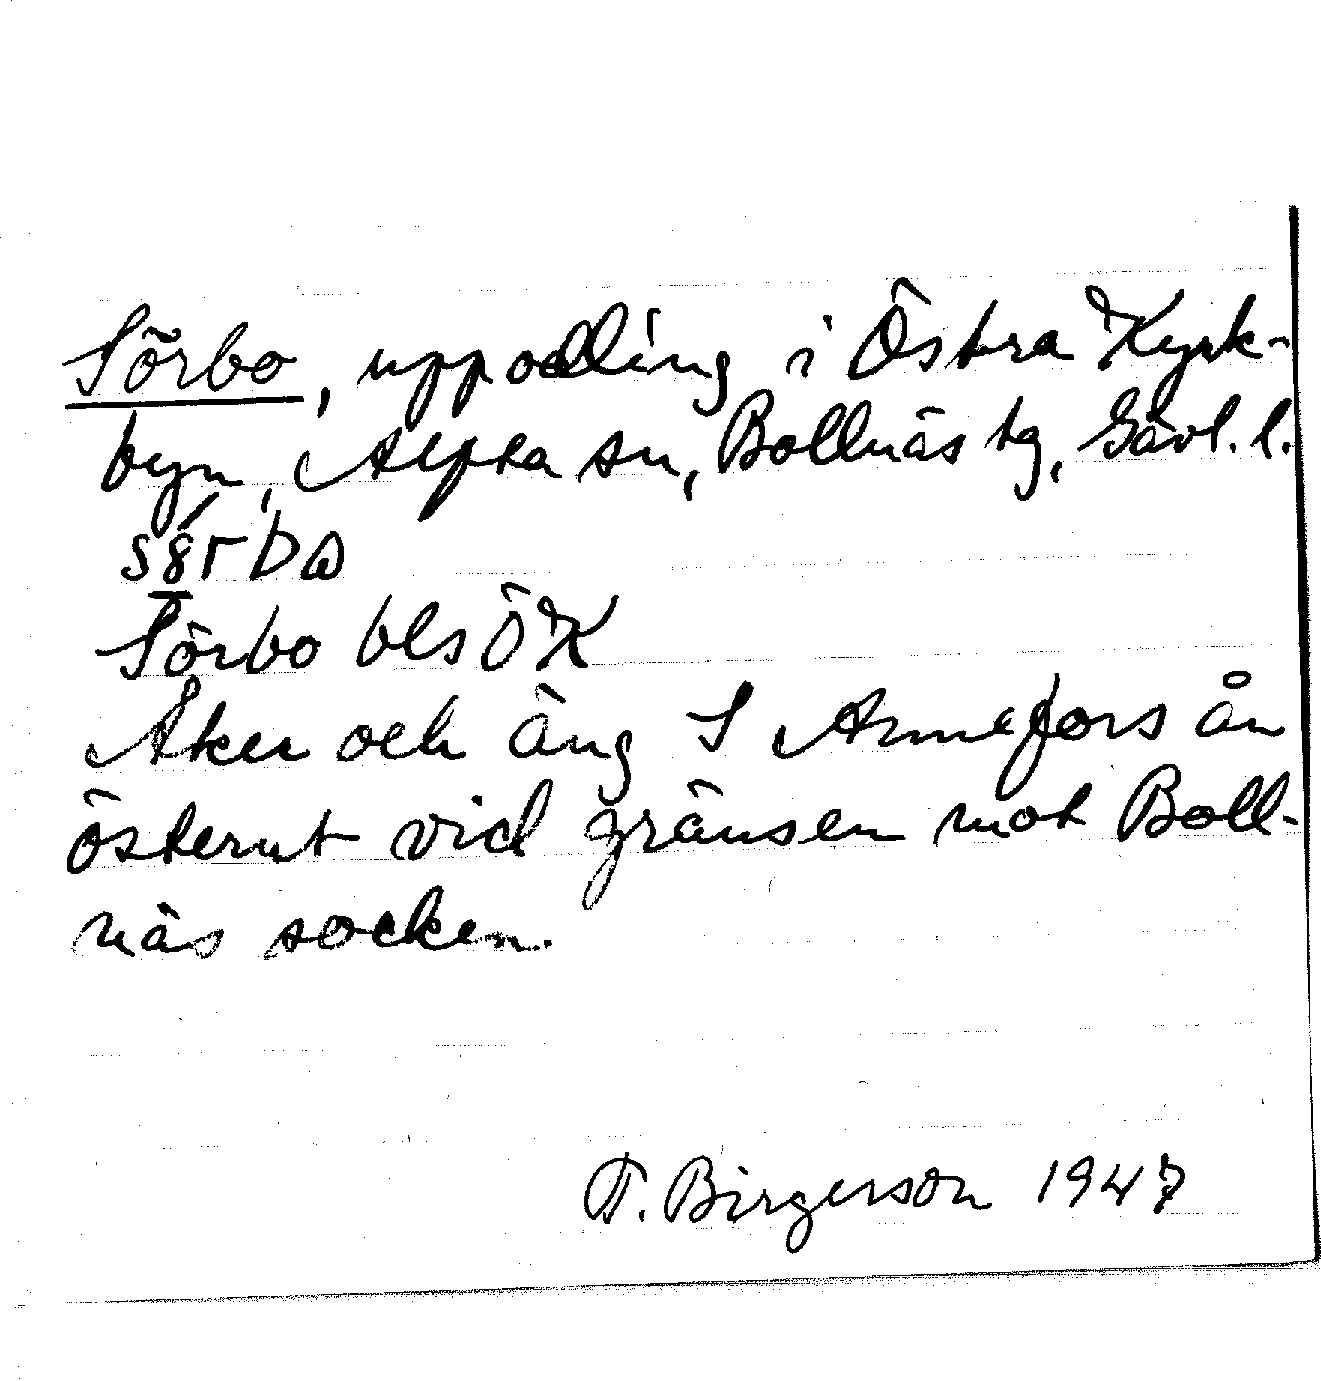 Sörbo, uppodling i Östra Kyrk-
byn, Alfta sn, Bollnäs tg, Gävl. l.
Sörbo bls ÖK
Åker och äng S Arnefors ån
österut vid gränsen mot Boll-
näs socken.
Birgerson 1947